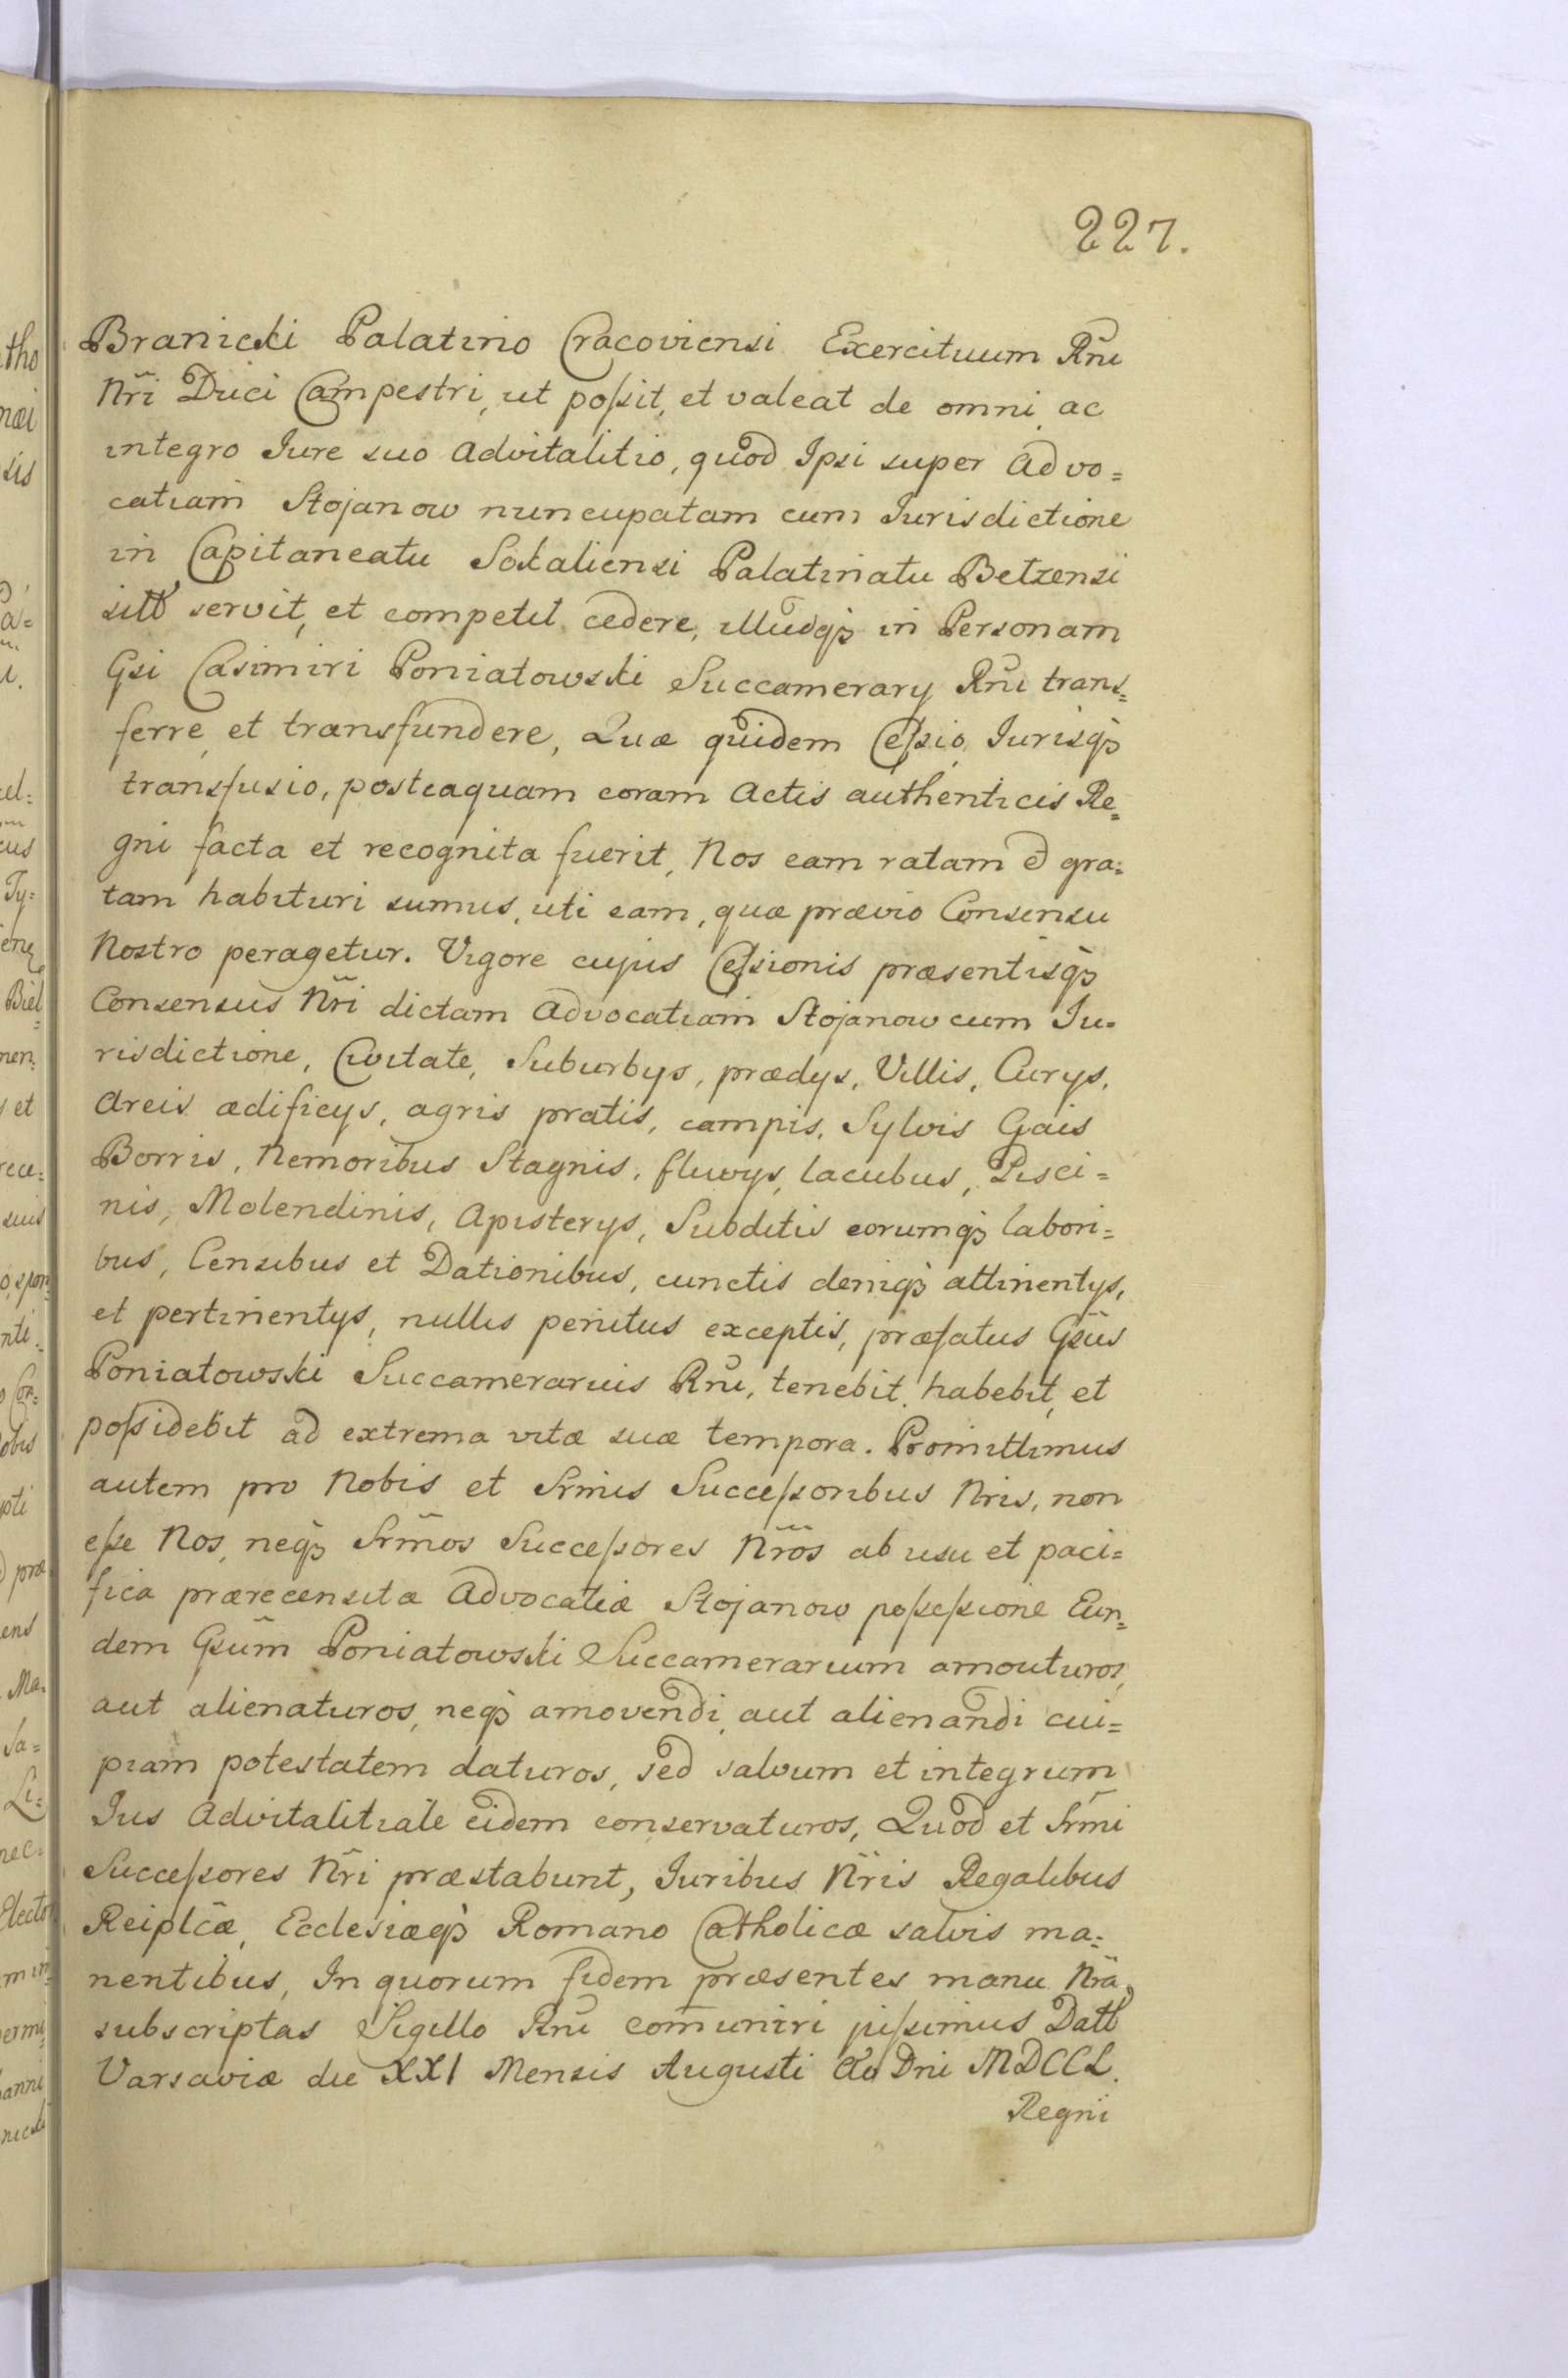 227.
Branicki Palatino Cracoviensi Exercituum Rñi
Nri Duci Campestri, ut poſsit, et valeat de omni ac
integro Jure suo Advitalitio, quod Ipsi super Advo=
catiam Stojanow nuncupatam cum Jurisdictione
in Capitaneatu Sokaliensi Palatinatu Betzensi
sitt servit, et competit cedere, illudq₃ in Personam
Gsi Casimiri Poniatowski Succamerary Rñi trans=
ferre, et transfundere, Quæ quidem Ceſsio, Jurisq₃
transfusio, posteaquam coram Actis authenticis Re=
gni facta et recognita fuerit, Nos eam ratam et gra=
tam habituri sumus, uti eam, quæ prævio Consensu
Nostro peragetur. Vigore cujus Ceſsionis præsentisq₃
Consensus Nri dictam Advocatiam Stojanow cum Ju=
risdictione, Civitate, Suburbys, prædys, Villis, Curys,
Areis ædificys, agris pratis, campis, Sylvis Gais
Borris, Nemoribus Stagnis, fluvys, lacubus, Pisci=
nis, Molendinis, Apisterys, Subditis eorumq₃ labori=
bus, Censibus et Dationibus, cunctis deniq₃ attinentys,
et pertinentys, nullis penitus exceptis, præfatus Gsus
Poniatowski Succamerarius Rñi, tenebit, habebit, et
poſsidebit ad extrema vitæ suæ tempora. Promittimus
autem pro Nobis et Srmis Succeſsoribus Nris, non
eſse Nos, neq₃ Srmos Succeſsores Nros ab usu et paci=
fica prærecensitæ Advocatiæ Stojanow poſseſsione Eun=
dem Gsum Poniatowski Succamerarium amouturos,
aut alienaturos, neq₃ amovendi, aut alienandi cui=
piam potestatem daturos, sed salvum et integrum
Jus Advitalitiale eidem conservaturos, Quod et Srmi
Succeſsores Nri præstabunt, Juribus Nris Regalibus
Reiplcæ, Ecclesiæq₃ Romano Catholicæ salvis ma=
nentibus, In quorum fidem præsentes manu Nra
subscriptas Sigillo Rñi com̃uniri juſsimus Datt
Varsaviæ die XXI Mensis Augusti Ao Dni MDCCL.
Regni